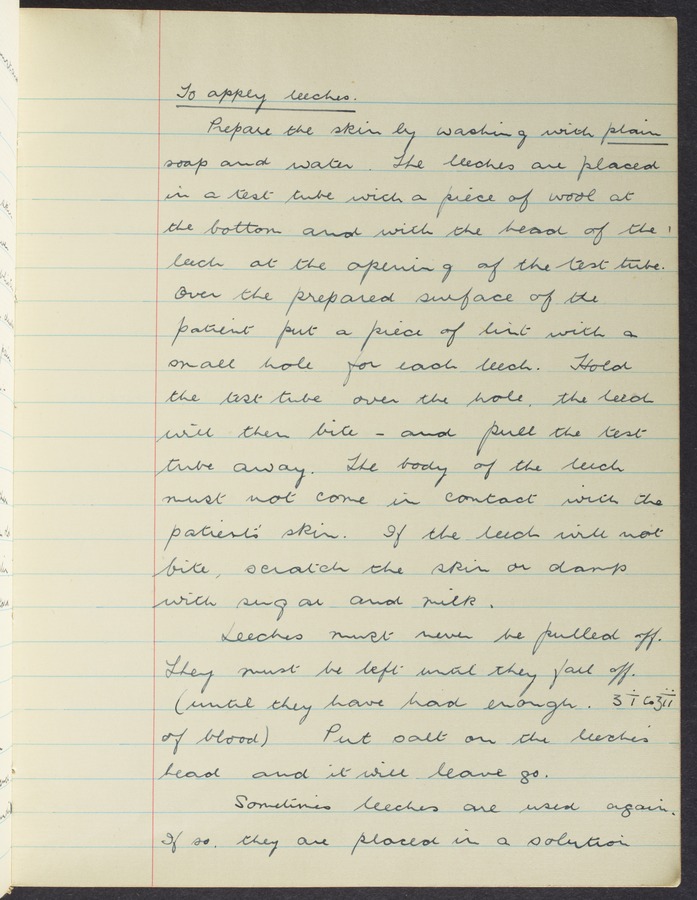 To apply leeches.
Prepare the skin by washing with plain
soap and water. The leeches are placed
in a test tube with a piece of wool at
the bottom and with the head of the
leech at the opening of the test tube.
Over the prepared surface of the
patient put a piece of lint with a
small hole for each leech. Hold
the test tube over the hole, the leech
will then bite - and pull the test
tube away. The body of the leech
must not come in contact with the
patient's skin. If the leech will not
bite, scratch the skin or damp
with sugar and milk.
Leeches must never be pulled off.
They must be left until they fall off.
(until they have had enough. ʒi to ʒii
of blood) Put salt on the leeches
head and it will leave go.
Sometimes leeches are used again.
If so, they are placed in a solution